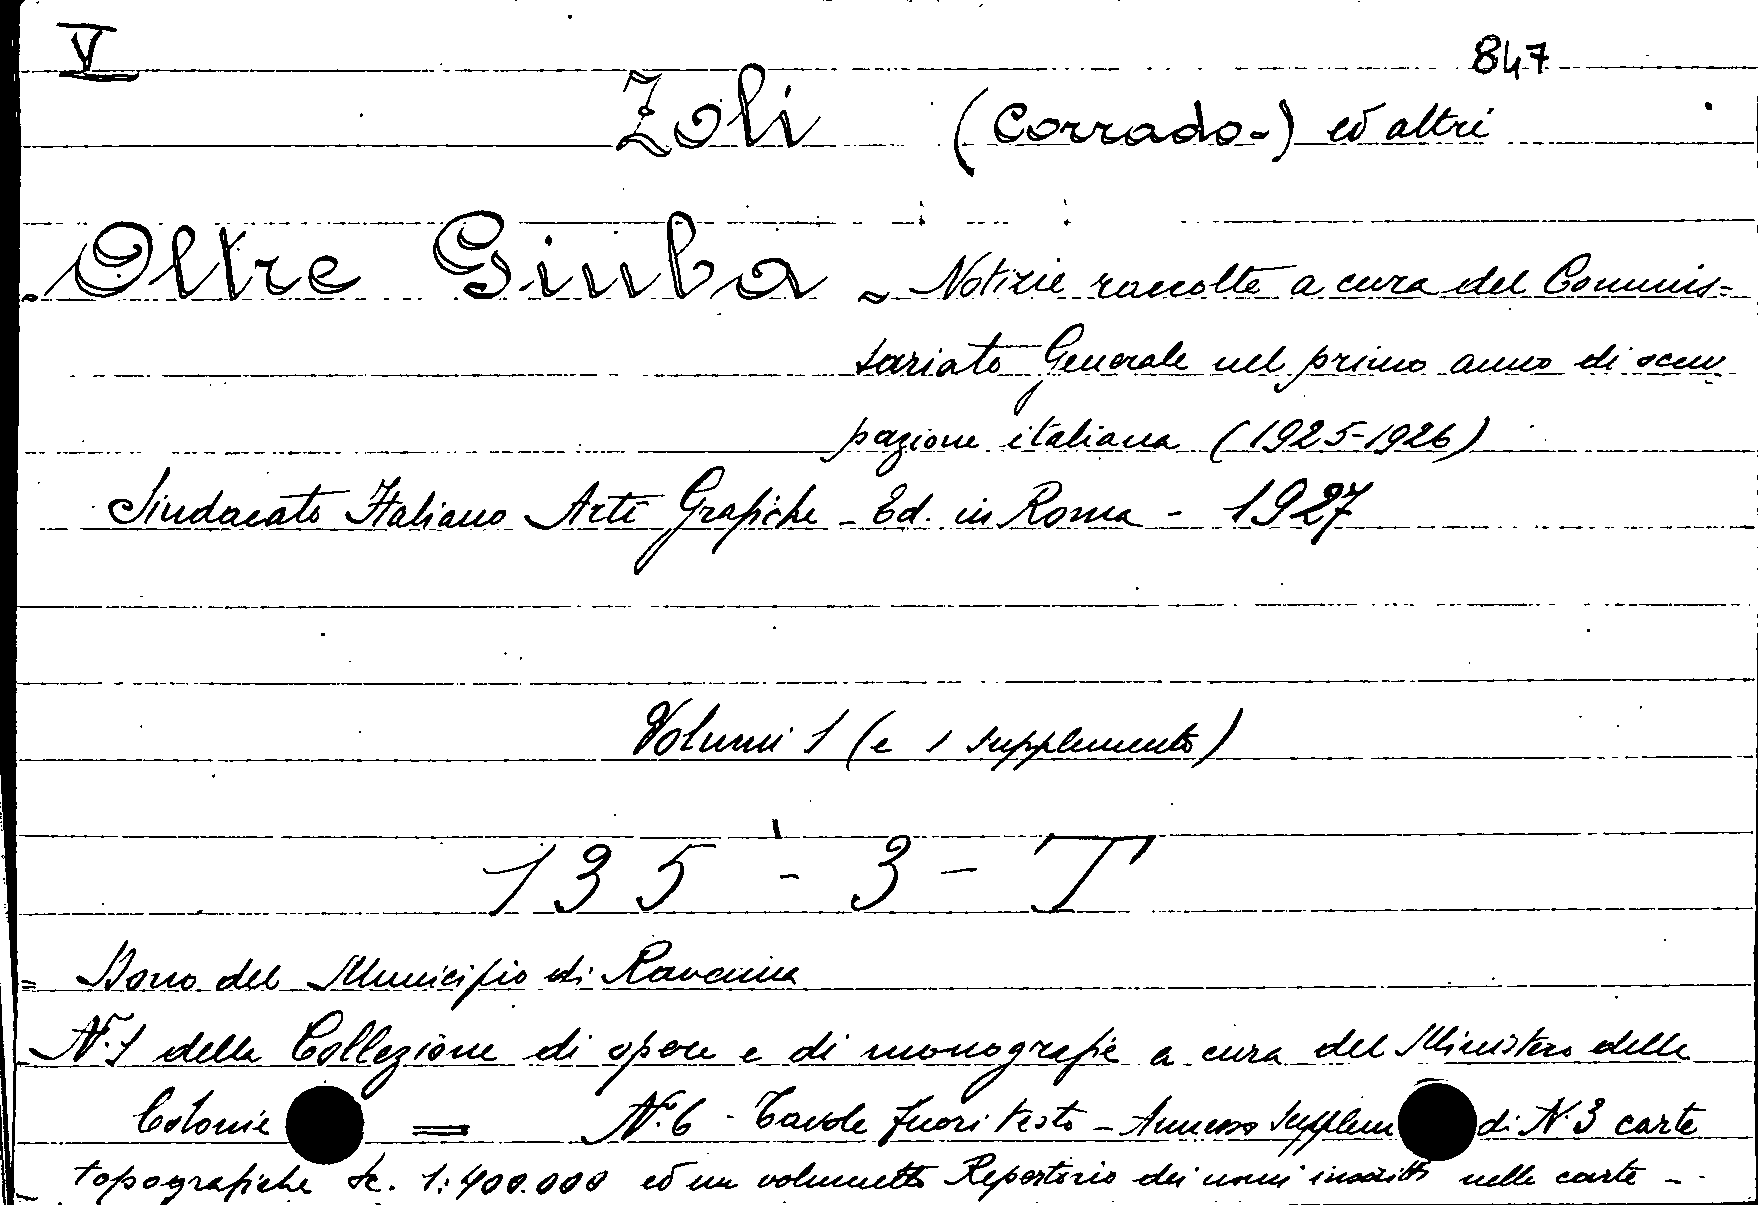 V
847
Zoli (Corrado-) ed altri
Oltre Giuba - Notizie raccolte a cura del Commis=
sariato Generale nel primo anno di occu
pazione italiana (1925-1926)
Sindacato Italiano Arti Grafiche - Ed. in Roma - 1927
Volumi 1 (e 1 supplemento)
135 - 3 - T
= Dono del Municipio di Ravenna
N. 1 della Collezione di opere e di monografie a cura del Ministero delle
Colonie = N. 6 - Tavole fuori testo - Annesso Supplem di N. 3 carte
topografiche Sc. 1:400.000 ed un volumetto Repertorio dei nomi inscritti nelle carte -